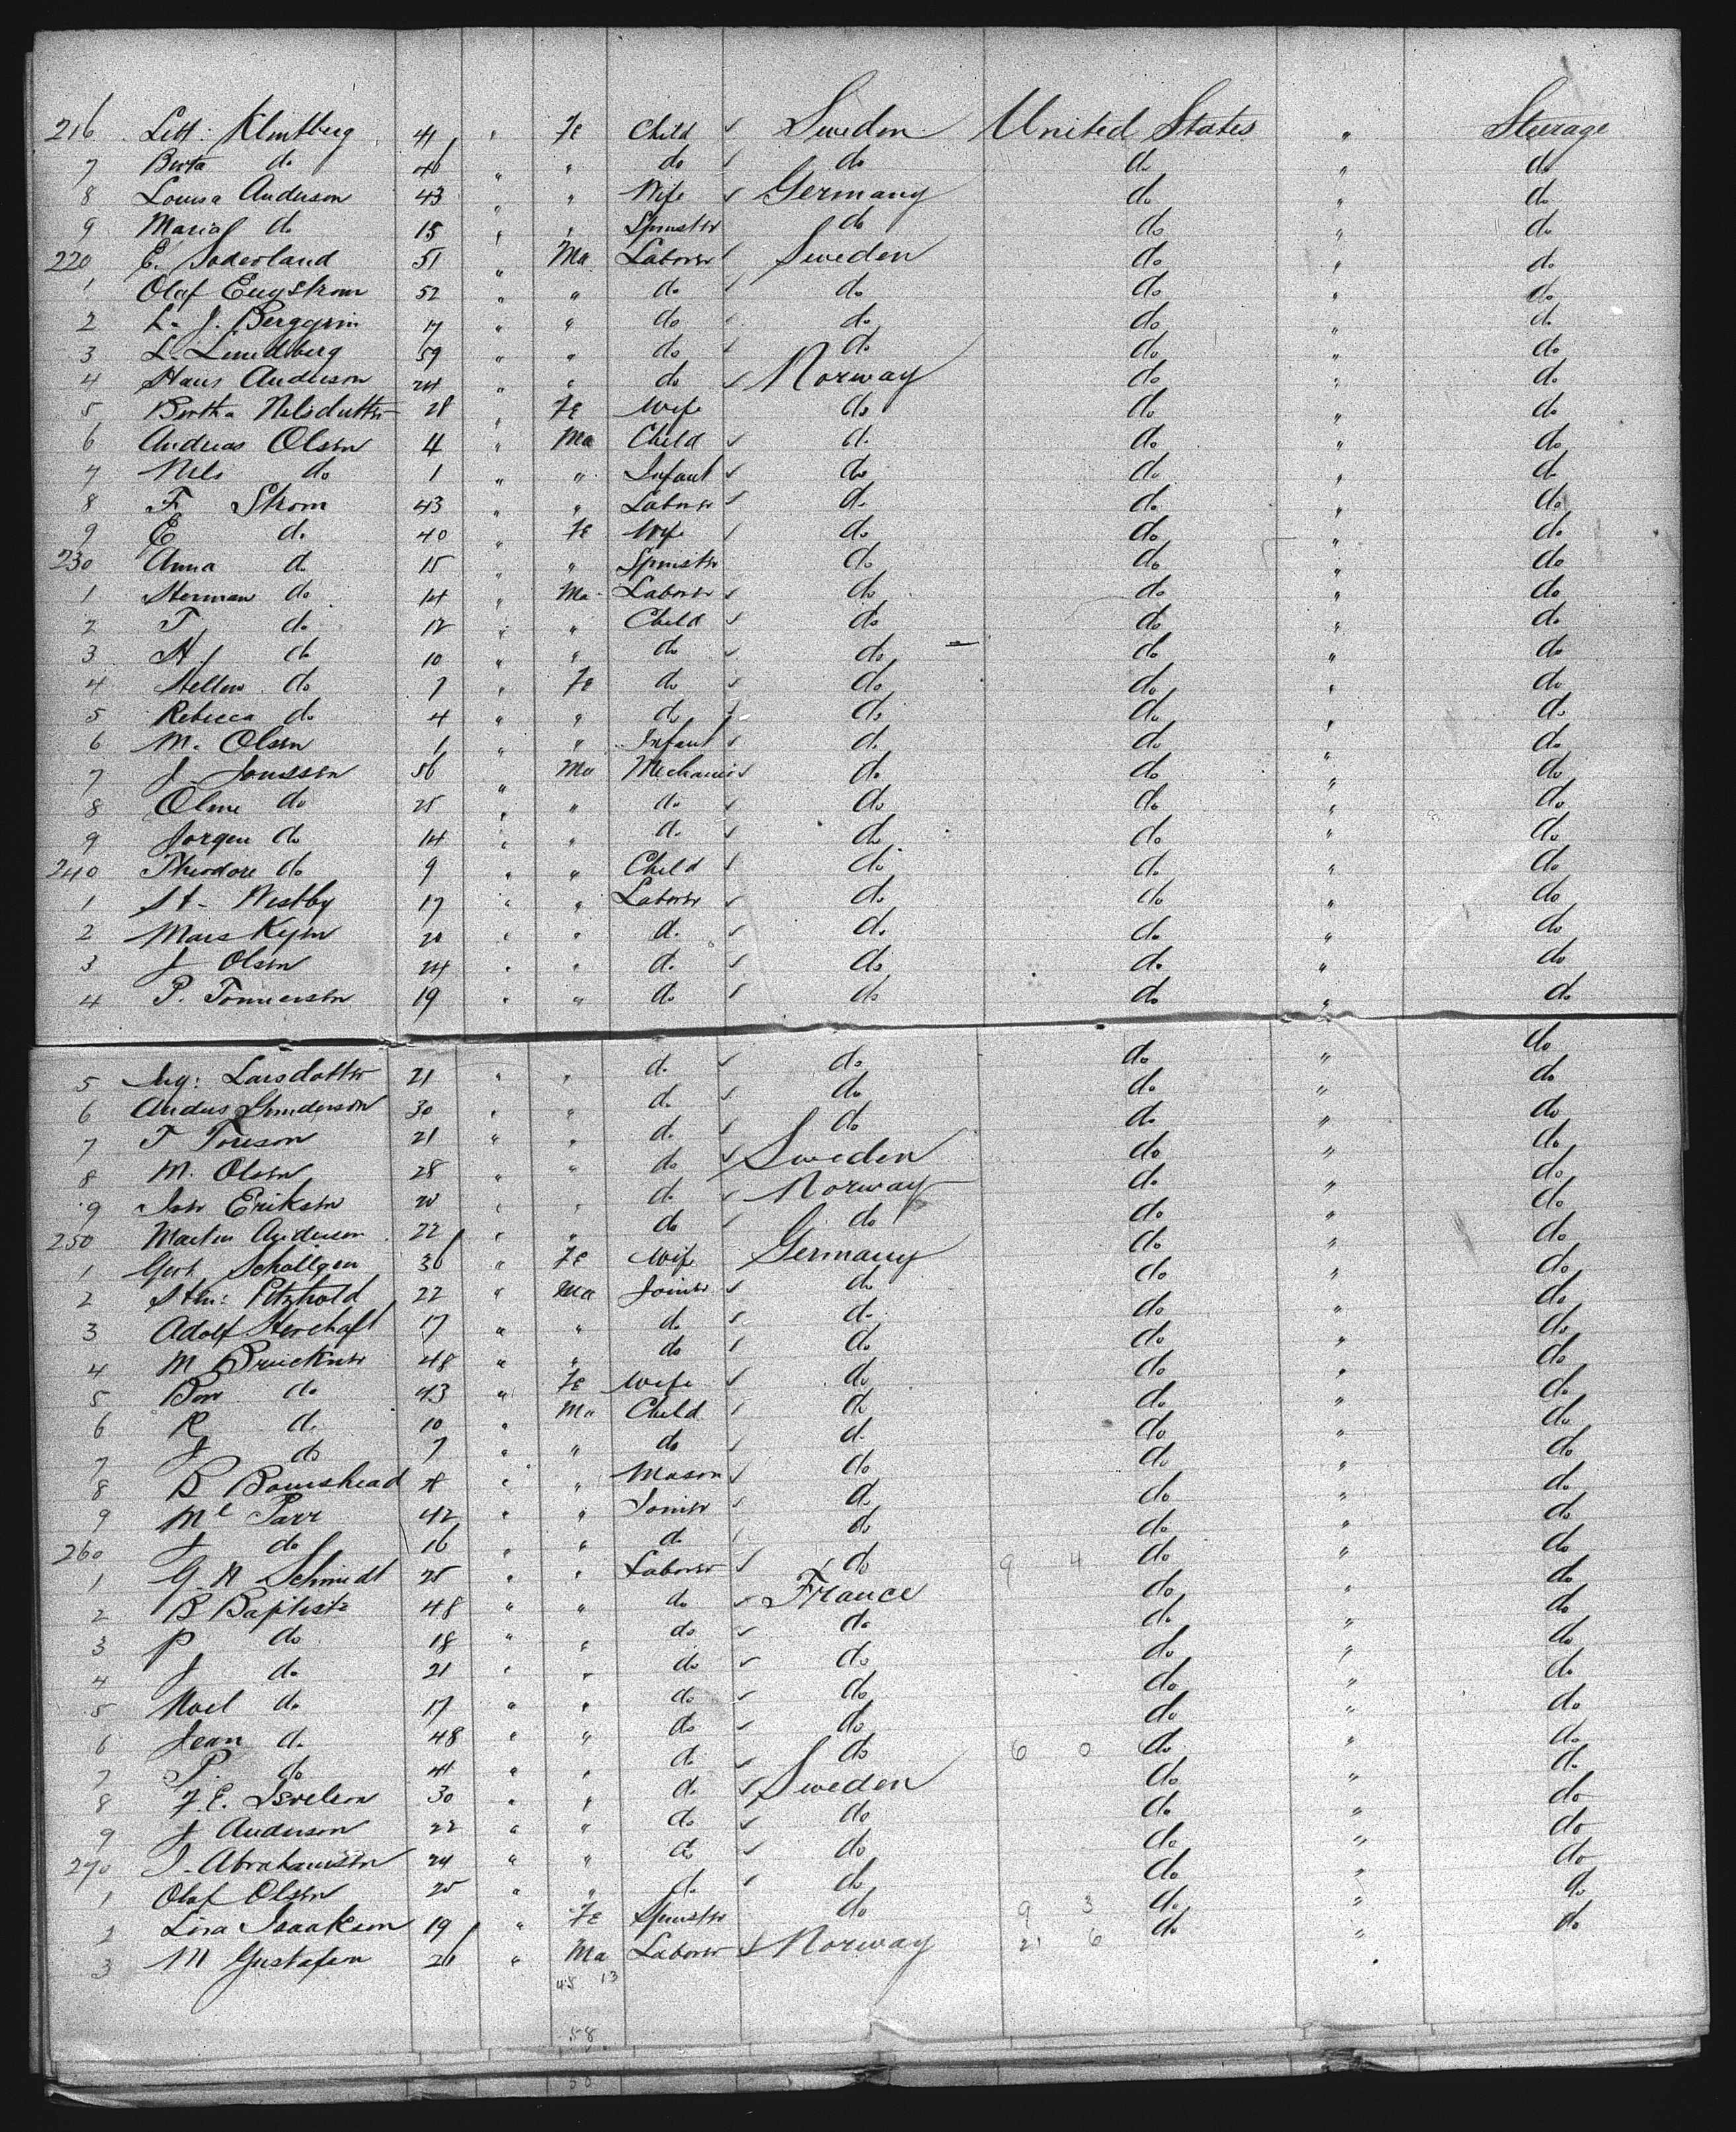 216 Lett: Klintberg 4 " Fe Child ✓ Sweden United States " Steerage
7 Berta do " " do ✓ do do " do
8 Louisa Anderson 43 " " Wife ✓ Germany do " do
9 Maria do 15 " " Spinster do do " do
220 E. Soderland 51 " Ma Laborer ✓ Sweden do " do
1 Olaf Engstrom 52 " " do ✓ do do " do
2 L. J. Berggrin 17 " " do do do " do
3 L. Lundberg 59 " " do ✓ do do " do
4 Hans Anderson 24 " " do ✓ Norway do " do
5 Bertha Nilsdutter 28 " Fe Wife do do " do
6 Andreas Olsen 4 " Ma Child ✓ do do " do
7 Nils do 1 " " Infant ✓ do do " do
8 F. Strom 43 " " Laborer ✓ do do " do
9 E do 40 " Fe Wife ✓ do do " do
230 Anna do 15 " " Spinster do do " do
1 Herman do 14 " Ma Laborer ✓ do do " do
2 T. do 12 " " Child ✓ do do " do
3 H. do 10 " " do ✓ do do " do
4 Hellen do 7 " Fe do ✓ do do " do
5 Rebecca do 4 " " do ✓ do do " do
6 M. Olsen 1 " " Infant ✓ do do " do
7 J. Jonssen 56 " Ma Mechanic ✓ do do " do
8 Olme do 25 " " do ✓ do do " do
9 Jorgen do 14 " " do ✓ do do " do
240 Theodore do 9 " " Child ✓ do do " do
1 St- Westby 17 " " Laborer ✓ do do " do
2 20 " " do ✓ do do " do
3 J Olsen 24 " " do ✓ do do " do
4 P. Tonnersen 19 " " do ✓ do do " do
5 Larsdotter 21 " " do ✓ do do " do
6 Andus Gunderson 30 " " do ✓ do do " do
7 T Torison 21 " " do ✓ do do " do
8 M. Olsen 28 " " do ✓ Sweden do " do
9 Eriksen 20 " " do ✓ Norway do " do
250 Martin Anderson 22 " " do ✓ do do " do
1 Gert Schollgen 36 " Fe Wife Germany do " do
2 Petzhold 22 " Ma Joiner ✓ do do " do
3 Adolf Herchaft 17 " " do ✓ do do " do
4 M Bruckner 48 " " do ✓ do do " do
5 do 43 " Fe Wife ✓ do do " do
6 R do 10 " Ma Child ✓ do do " do
7 J do 7 " " do ✓ do do " do
8 B Bauishead " " Mason ✓ do do " do
9 Mc Parr 42 " " Joiner ✓ do do " do
260 J do 16 " " do ✓ do do " do
1 G. H Schmidt 25 " " Laborer ✓ do 9 4 do " do
2 B Baptiste 48 " " do ✓ France do " do
3 P do 18 " " do ✓ do do " do
4 J do 21 " " do ✓ do do " do
5 Noel do 17 " " do ✓ do do " do
6 Jean do 48 " " do ✓ do do " do
7 P. do " " do ✓ do 6 0 do " do
8 F. E. Isrelson 30 " " do ✓ Sweden do " do
9 J Anderson 22 " " do ✓ do do " do
270 J. Abrahamson 24 " " do ✓ do do " do
1 Olaf Olsen 25 " " do ✓ do do " do
2 Lina Isaakson 19 " Fe Spinster do 9 3 do " do
3 M Gustafson " Ma Laborer ✓ Norway 21 6 do " do
45 13
58